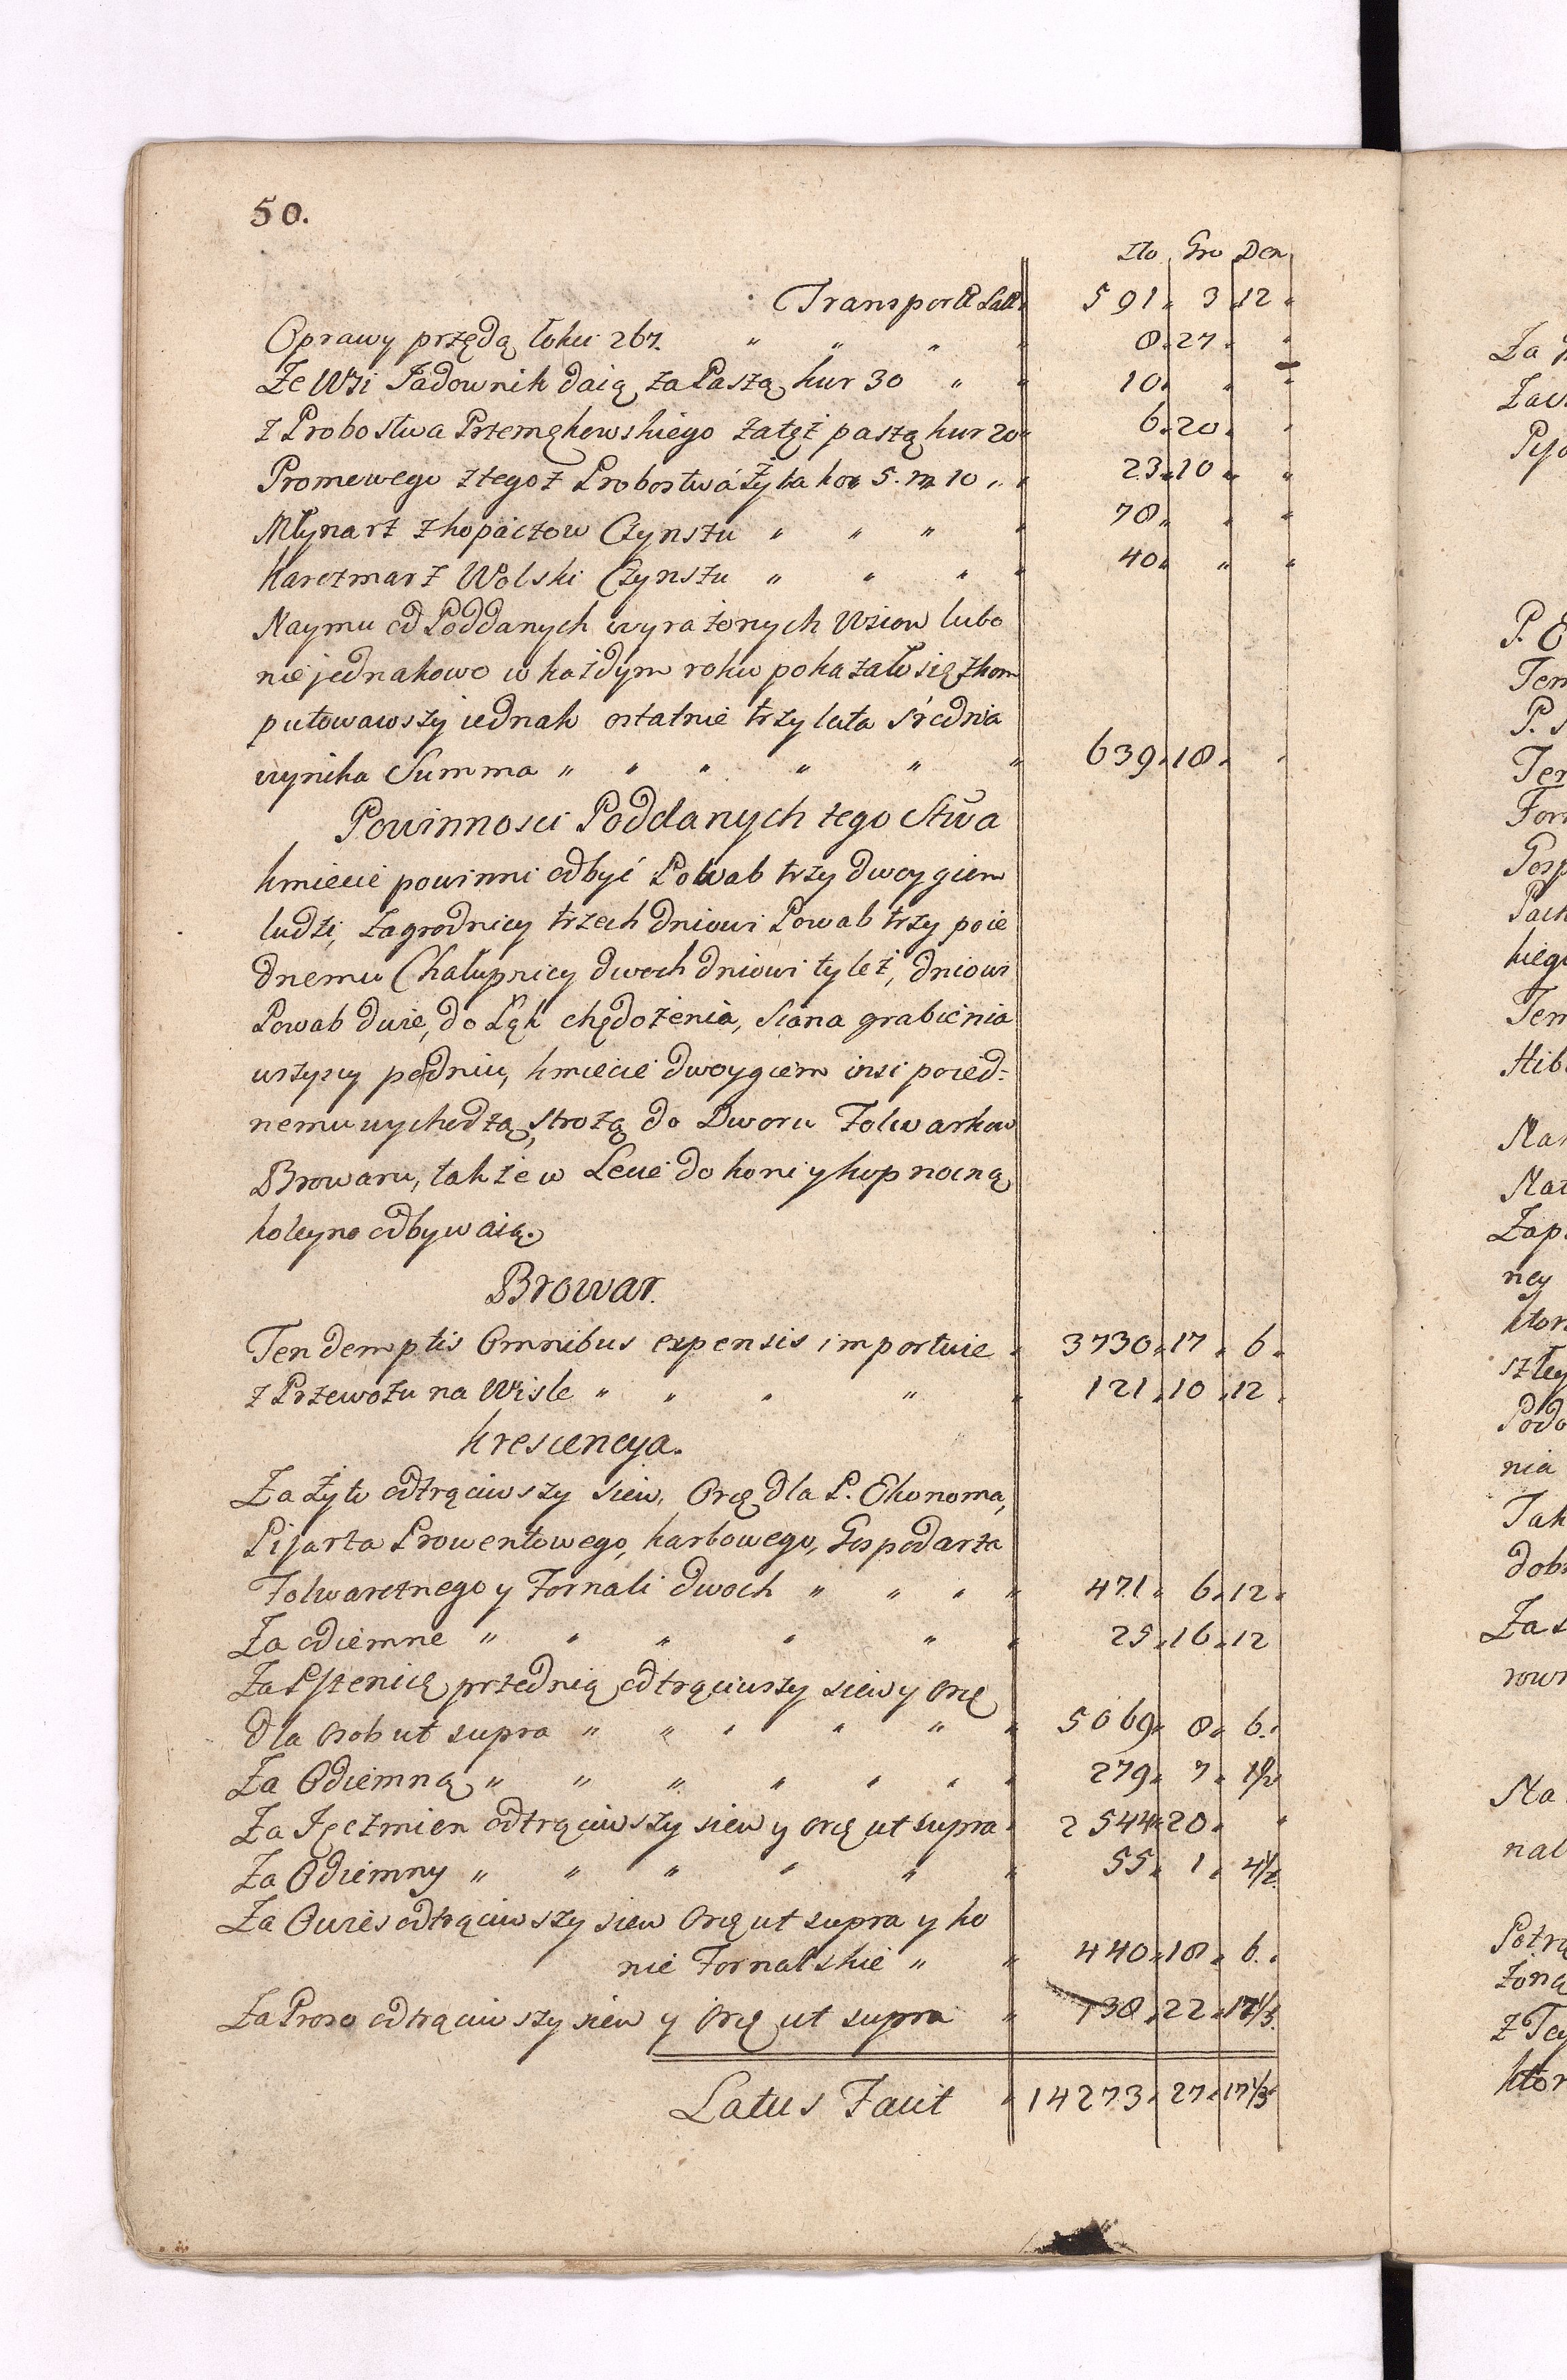 50.
Zło Gro Den
Transport Lat. 591 3 12
Oprawy przędą łokci 267. " " " 8. 27.
Ze Wsi Jadownik daią za Paszą kur 30 " 10.
z Probostwa Przemękowskiego zatęż paszą kur 20 6. 20.
Promewego z tegoż Probostwa Żyta kor 5. m 10 " 23. 10
Młynarz z kopaczow Czynszu " " " 70
Karczmarz Wolski Czynszu " " " 40
Naymu od Poddanych wyrażonych Wsiow lubo
nie jednakowo w każdym roku pokazało się zkom
putowawszy iednak ostatnie trzy lata srednia
wynika Summa " " " " " 639. 18.
Powinnosci Poddanych tego Stwa
Kmiecie powinni odbyć Powab trzy dwoygiem
ludzi, Zagrodnicy trzech dniowi Powab trzy poie
dnemu Chałupnicy dwoch dniowi tyleż, dniowi
Powab dwie, do Łąk chędożenia, Siana grabienia
wszyscy po dniu, kmiecie dwoygiem insi poied=
nemu wychodzą, strożą do Dworu Folwarkow
Browaru, także w Lecie do koni y kop nocną
koleyno odbywaią.
Browar.
Ten demptis Omnibus expensis importuie 3730. 17. 6.
z Przewozu na Wisle " " " " 121. 10. 12.
Krescencya.
Za Żyto odtrąciwszy siew, Orę dla P. Ekonoma,
Pisarza Prowentowego, karbowego, Gospodarza
Folwarcznego y Fornali dwoch " " " 471. 6. 12.
Za odiemne " " " " " 25. 16. 12
Za Pszenicę przednią odtrąciwszy siew y orę
dla osob ut supra " " " " " 5069. 8. 6.
Za Odiemną " " " " " " 279. 7. 1½
Za Jęczmien odtrąciwszy siew y orę ut supra 2544. 20.
Za Odiemny " " " " " 55. 1. 4½
Za Owies odtrąciwszy siew Orę ut supra y ko
nie Fornalskie " " 440. 18. 6.
Za Proso odtrąciwszy siew y Orę ut supra 138. 22. 17⅓
Latus Facit 14273. 27. 17⅓